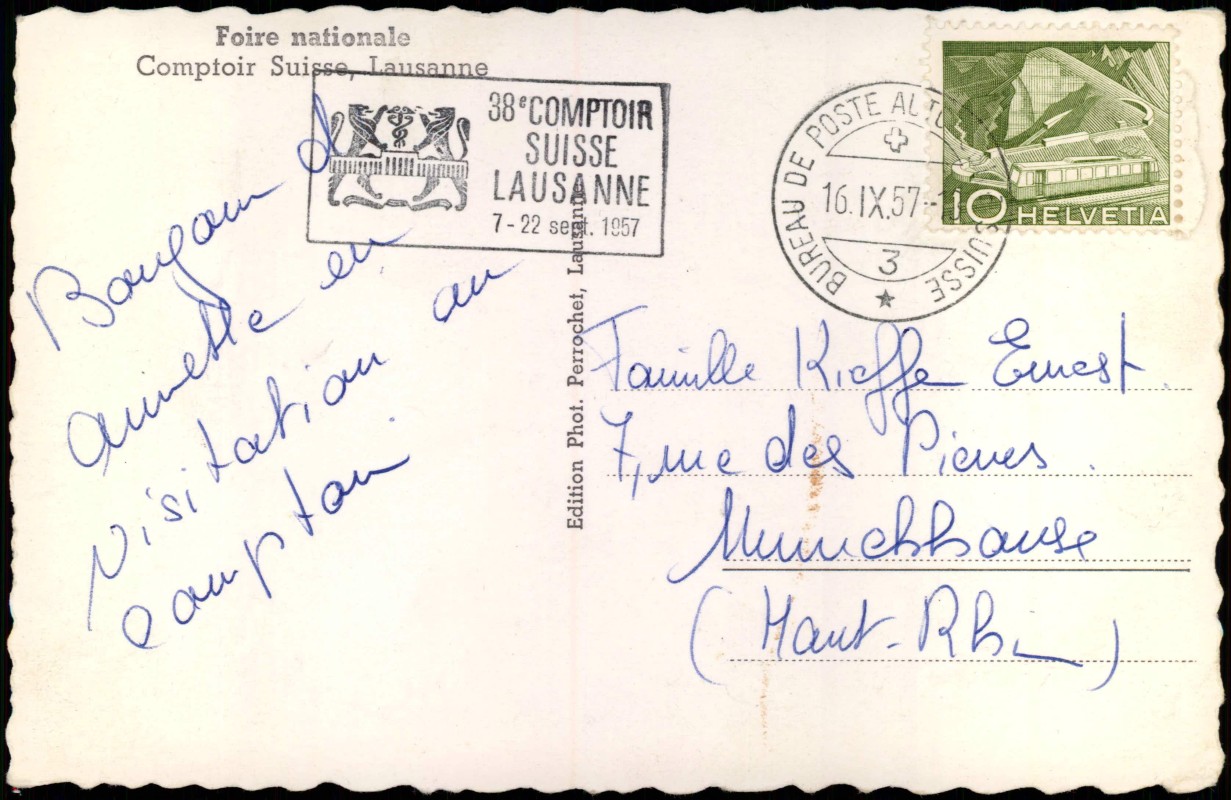 Foire nationale
Comptoir Suisse, Lausanne
38e COMPTOIR
SUISSE
LAUSANNE
7 - 22 sept. 1957
BUREAU DE POSTE AUTO SUISSE
16.IX.57
3
10 HELVETIA
Bonjour d
annette en
visitation au
comptoir
Edition Phot. Perrochet, Lausanne
Famille Kieffer Ernest.
7, rue des Pierres.
Munchhouse
(Haut-Rhin)